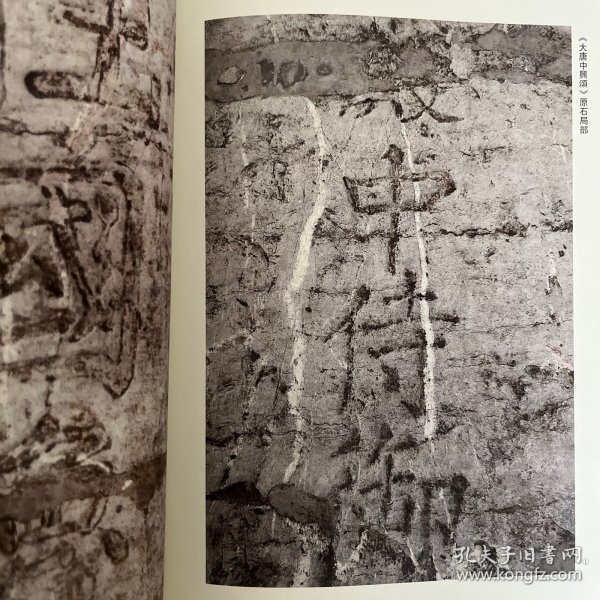 《大唐中興頌》原石局部
中侍御
國
孔夫子旧书网
www.kongfz.com